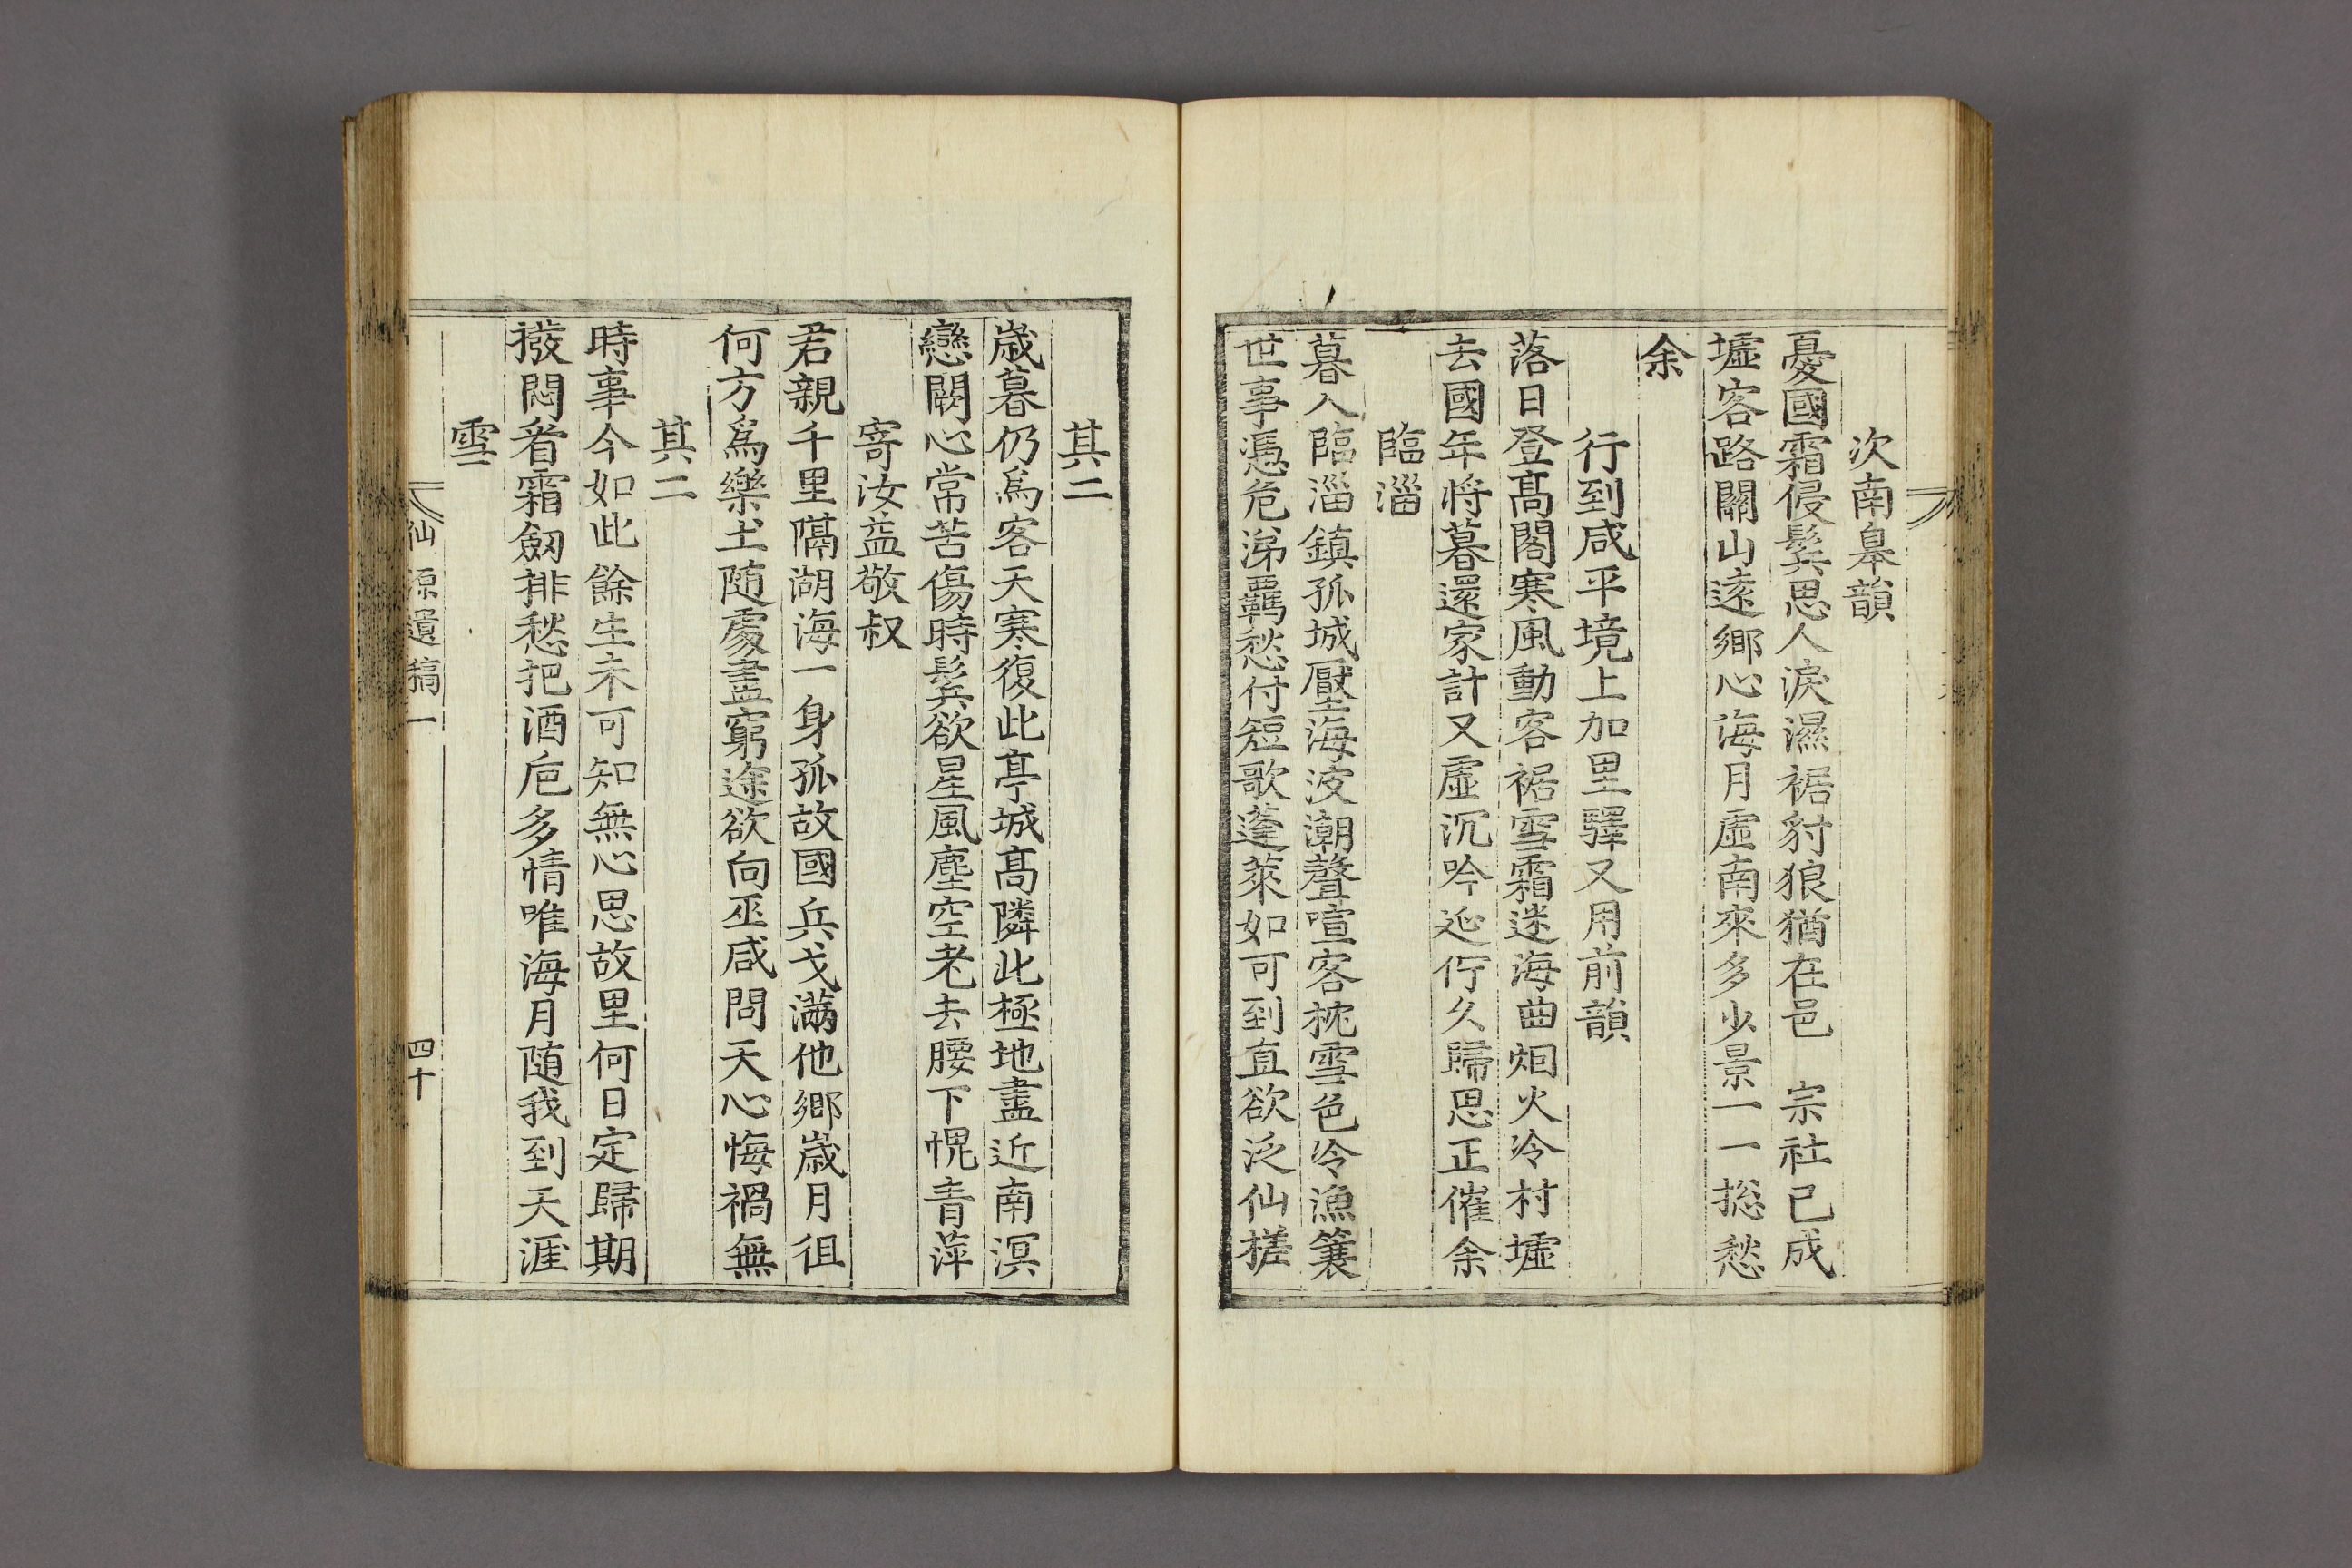 次南皐韻
憂國霜侵鬂思人淚濕裾豺狼猶在邑　宗社已成
墟客路關山遠鄉心海月虛南來多少景一一捴愁
余
行到咸平境上加里驛又用前韻
落日登高閣寒風動客裾雪霜迷海曲烟火冷村墟
去國年將暮還家計又虛沉吟延佇久歸思正催余
臨淄
暮入臨淄鎮孤城壓海波潮聲喧客枕雪色冷漁簑
世事憑危涕羈愁付短歌蓬萊如可到直欲泛仙槎
其二
歲暮仍爲客天寒復此亭城高隣此極地盡近南溟
戀闕心常苦傷時鬂欲星風塵空老去腰下愰青萍
寄汝益敬叔
君親千里隔湖海一身孤故國兵戈滿他鄉歲月徂
何方爲樂土随處盡窮途欲向巫咸問天心悔禍無
其二
時事今如此餘生未可知無心思故里何日定歸期
撥悶看霜劒排愁把酒巵多情唯海月随我到天涯
雪
仙源遺稿一
四十